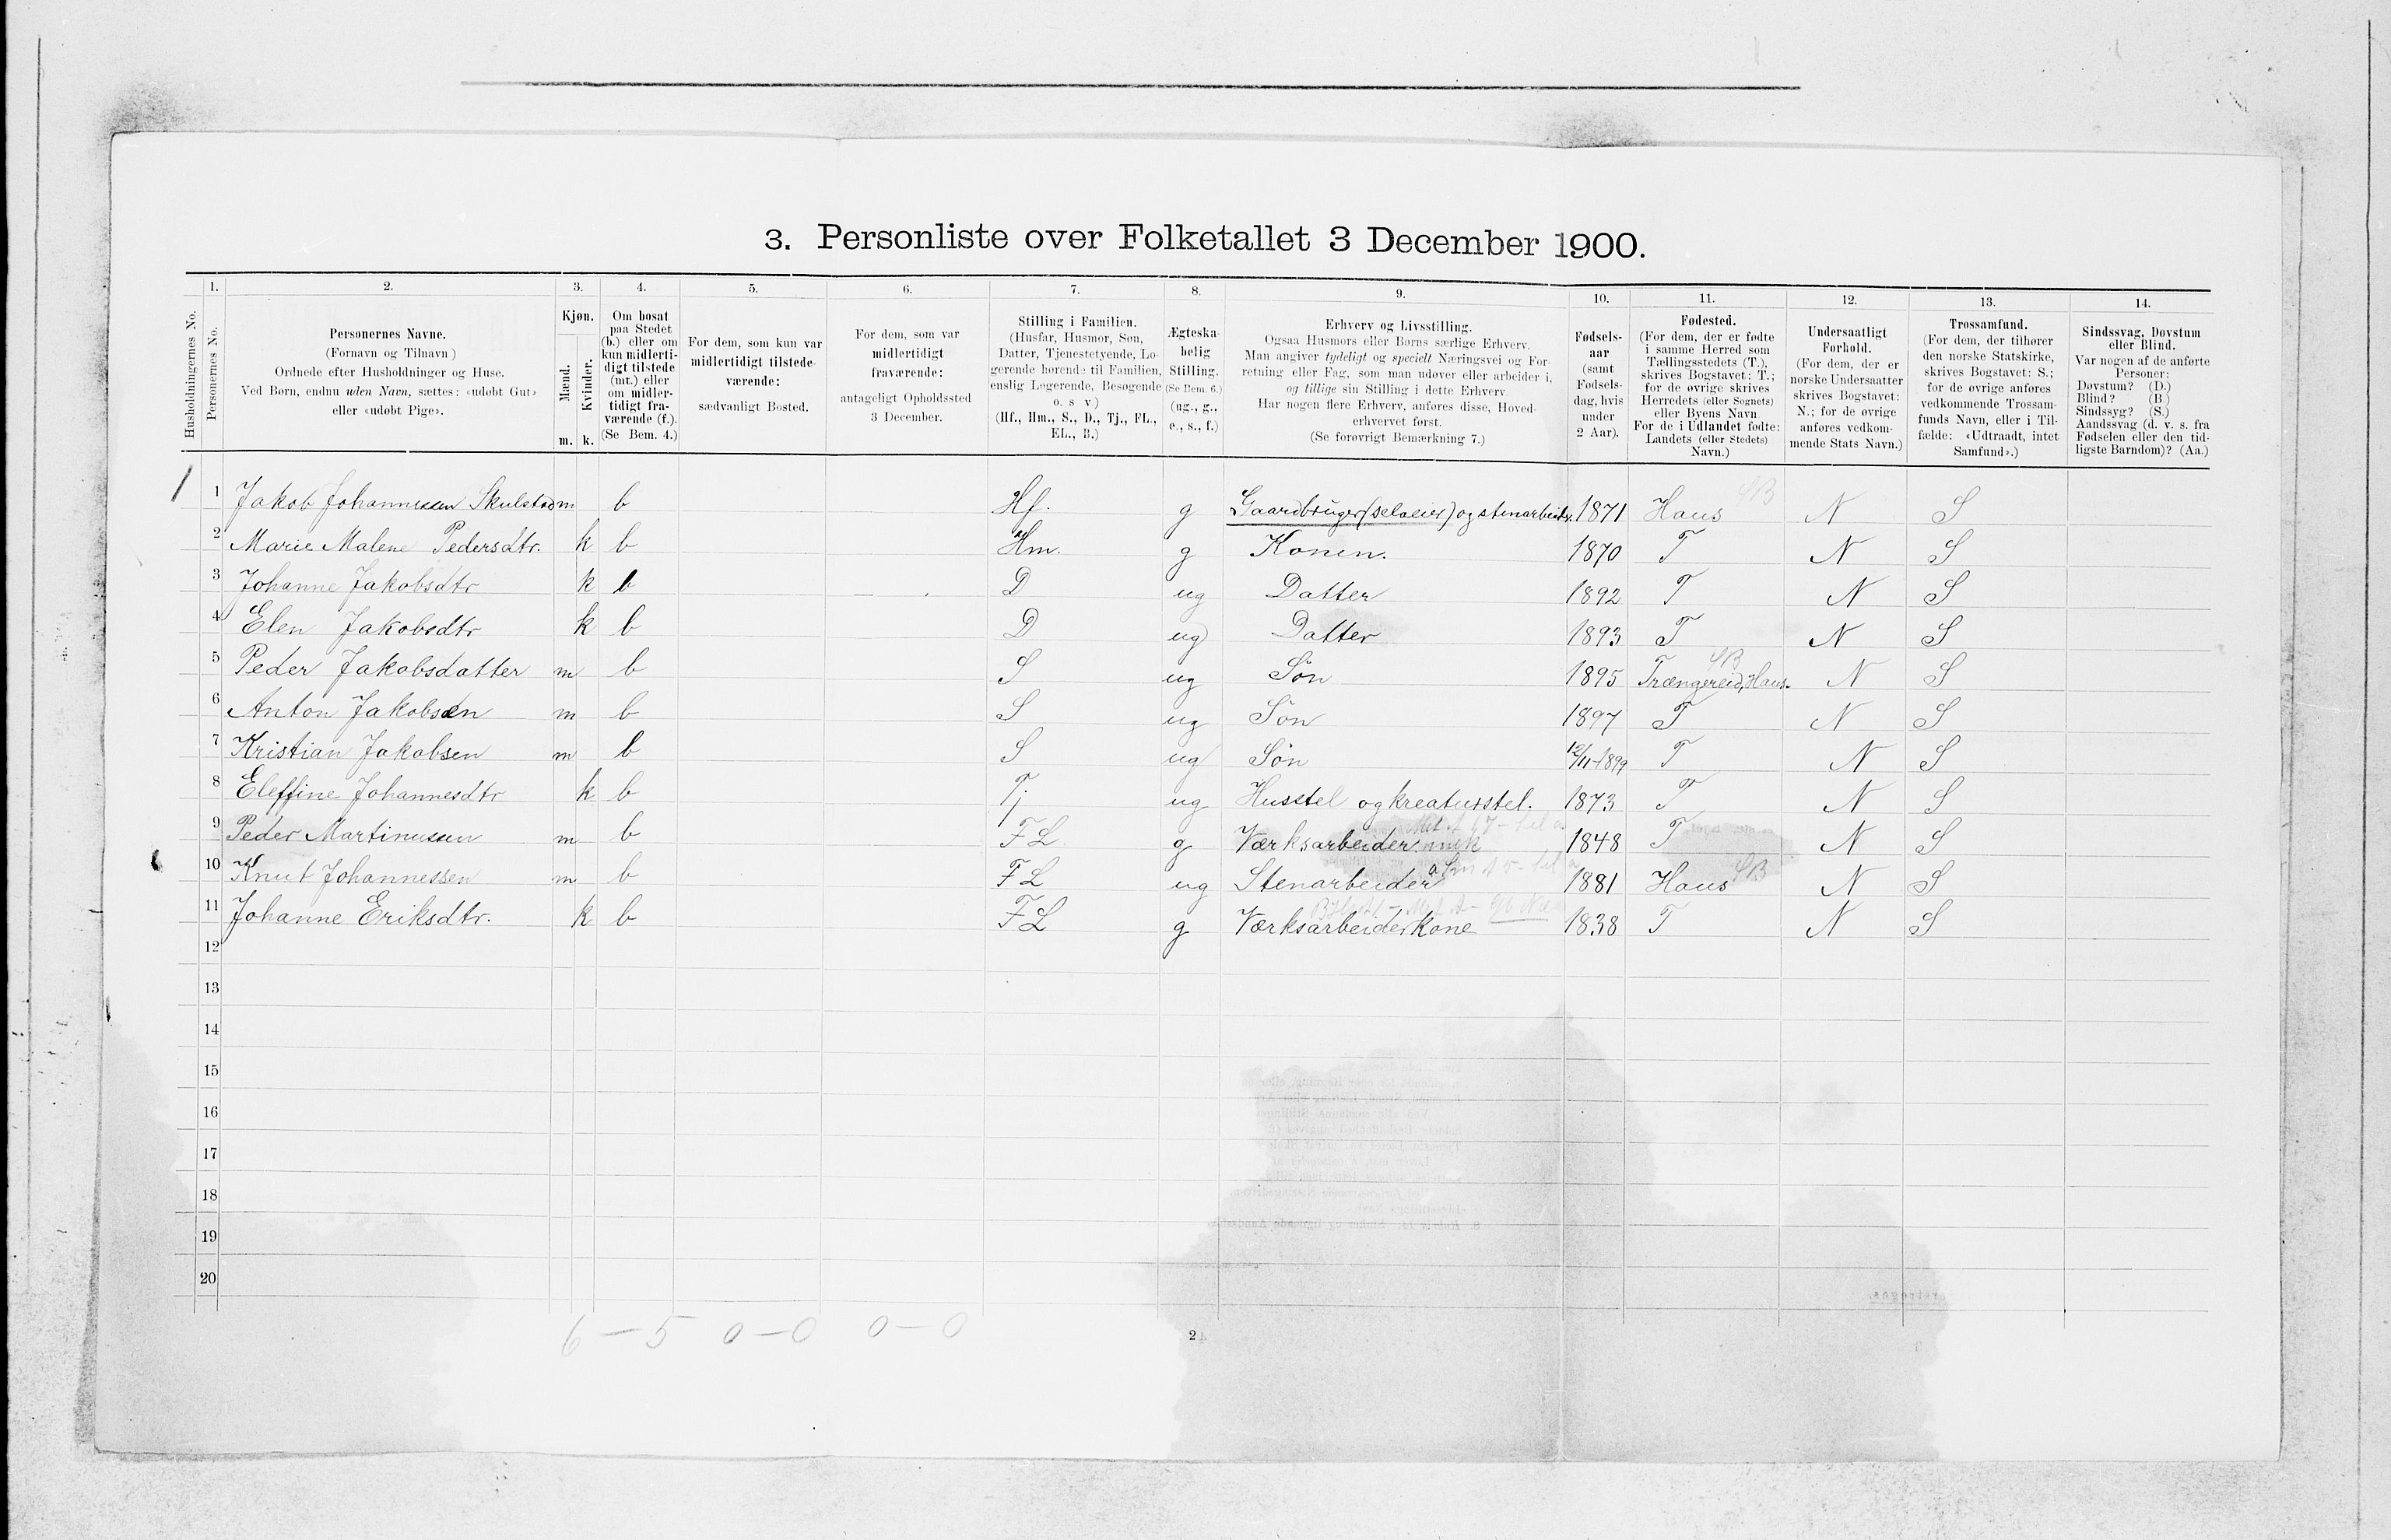 3. Personliste over Folketallet 3 December 1900.
1. 2. 3. 4. 5. 6. 7. 8. 9. 10. 11. 12. 13. 14.
Husholdningernes No.
Personernes No.
Personernes Navne.
(Fornavn og Tilnavn)
Ordnede efter Husholdninger og Huse.
Ved Børn, endnu uden Navn, sættes: «udøbt Gut»
eller «udøbt Pige».
Kjøn.
Mænd.
Kvinder.
m. k.
Om bosat
paa Stedet
(b.) eller om
kun midlerti-
digt tilstede
(mt.) eller
om midler-
tidigt fra-
værende (f.).
(Se Bem. 4.)
For dem, som kun var
midlertidigt tilstede-
værende:
sædvanligt Bosted.
For dem, som var
midlertidigt
fraværende:
antageligt Opholdssted
3 December.
Stilling i Familien.
(Husfar, Husmor, Søn,
Datter, Tjenestetyende, Lo-
gerende hørende til Familien,
enslig Logerende, Besøgende
o. s v.)
(Hf., Hm., S., D., Tj., FL.,
EL., B.)
Ægteska-
belig
Stilling.
(Se Bem. 6.)
(ug., g.,
e., s., f.)
Erhverv og Livsstilling.
Ogsaa Husmors eller Børns særlige Erhverv.
Man angiver tydeligt og specielt Næringsvei og For-
retning eller Fag, som man udøver eller arbeider i,
og tillige sin Stilling i dette Erhverv.
Har nogen flere Erhverv, anføres disse, Hoved-
erhvervet først.
(Se forøvrigt Bemærkning 7.)
Fødsels-
aar
(samt
Fødsels-
dag, hvis
under
2 Aar).
Fødested.
(For dem, der er fødte
i samme Herred som
Tællingsstedets (T.),
skrives Bogstavet: T.;
for de øvrige skrives
Herredets (eller Sognets)
eller Byens Navn.
For de i Udlandet fødte:
Landets (eller Stedets)
Navn.)
Undersaatligt
Forhold.
(For dem, der er
norske Undersaatter
skrives Bogstavet:
N.; for de øvrige
anføres vedkom-
mende Stats Navn.)
Trossamfund.
(For dem, der tilhører
den norske Statskirke,
skrives Bogstavet: S.;
for de øvrige anføres
vedkommende Trossam-
funds Navn, eller i Til-
fælde: «Udtraadt, intet
Samfund».)
Sindssvag, Døvstum
eller Blind.
Var nogen af de anførte
Personer:
Døvstum? (D.)
Blind? (B.)
Sindssyg? (S.)
Aandssvag (d. v. s. fra
Fødselen eller den tid-
ligste Barndom)? (Aa.)
1 1 Jakob Johannessen Skulstad m b Hf. g Gaardbruger (selveier) og stenarbeider. 1871 Haus SB N S
2 Marie Malene Pedersdtr. k b Hm. g Konen. 1870 T N S
3 Johanne Jakobsdtr k b D ug Datter 1892 T N S
4 Elen Jakobsdtr k b D ug Datter 1893 T N S
5 Peder Jakobsdatter m b S ug Søn 1895 Trængereid, Haus. SB N S
6 Anton Jakobsen m b S ug Søn 1897 T N S
7 Kristian Jakobsen m b S ug Søn 12/11-1899 T N S
8 Eleffine Johannesdtr k b Tj ug Husstel og kreaturstel. 1873 T N S
9 Peder Martinussen m b FL g Værksarbeider 1848 T N S
10 Knut Johannessen m b FL ug Stenarbeider 1881 Haus SB N S
11 Johanne Eriksdtr. k b FL g Værksarbeiderkone 1838 T N S
12
13
14
15
16
17
18
19
20
6 - 5 0 - 0 0 - 0
2